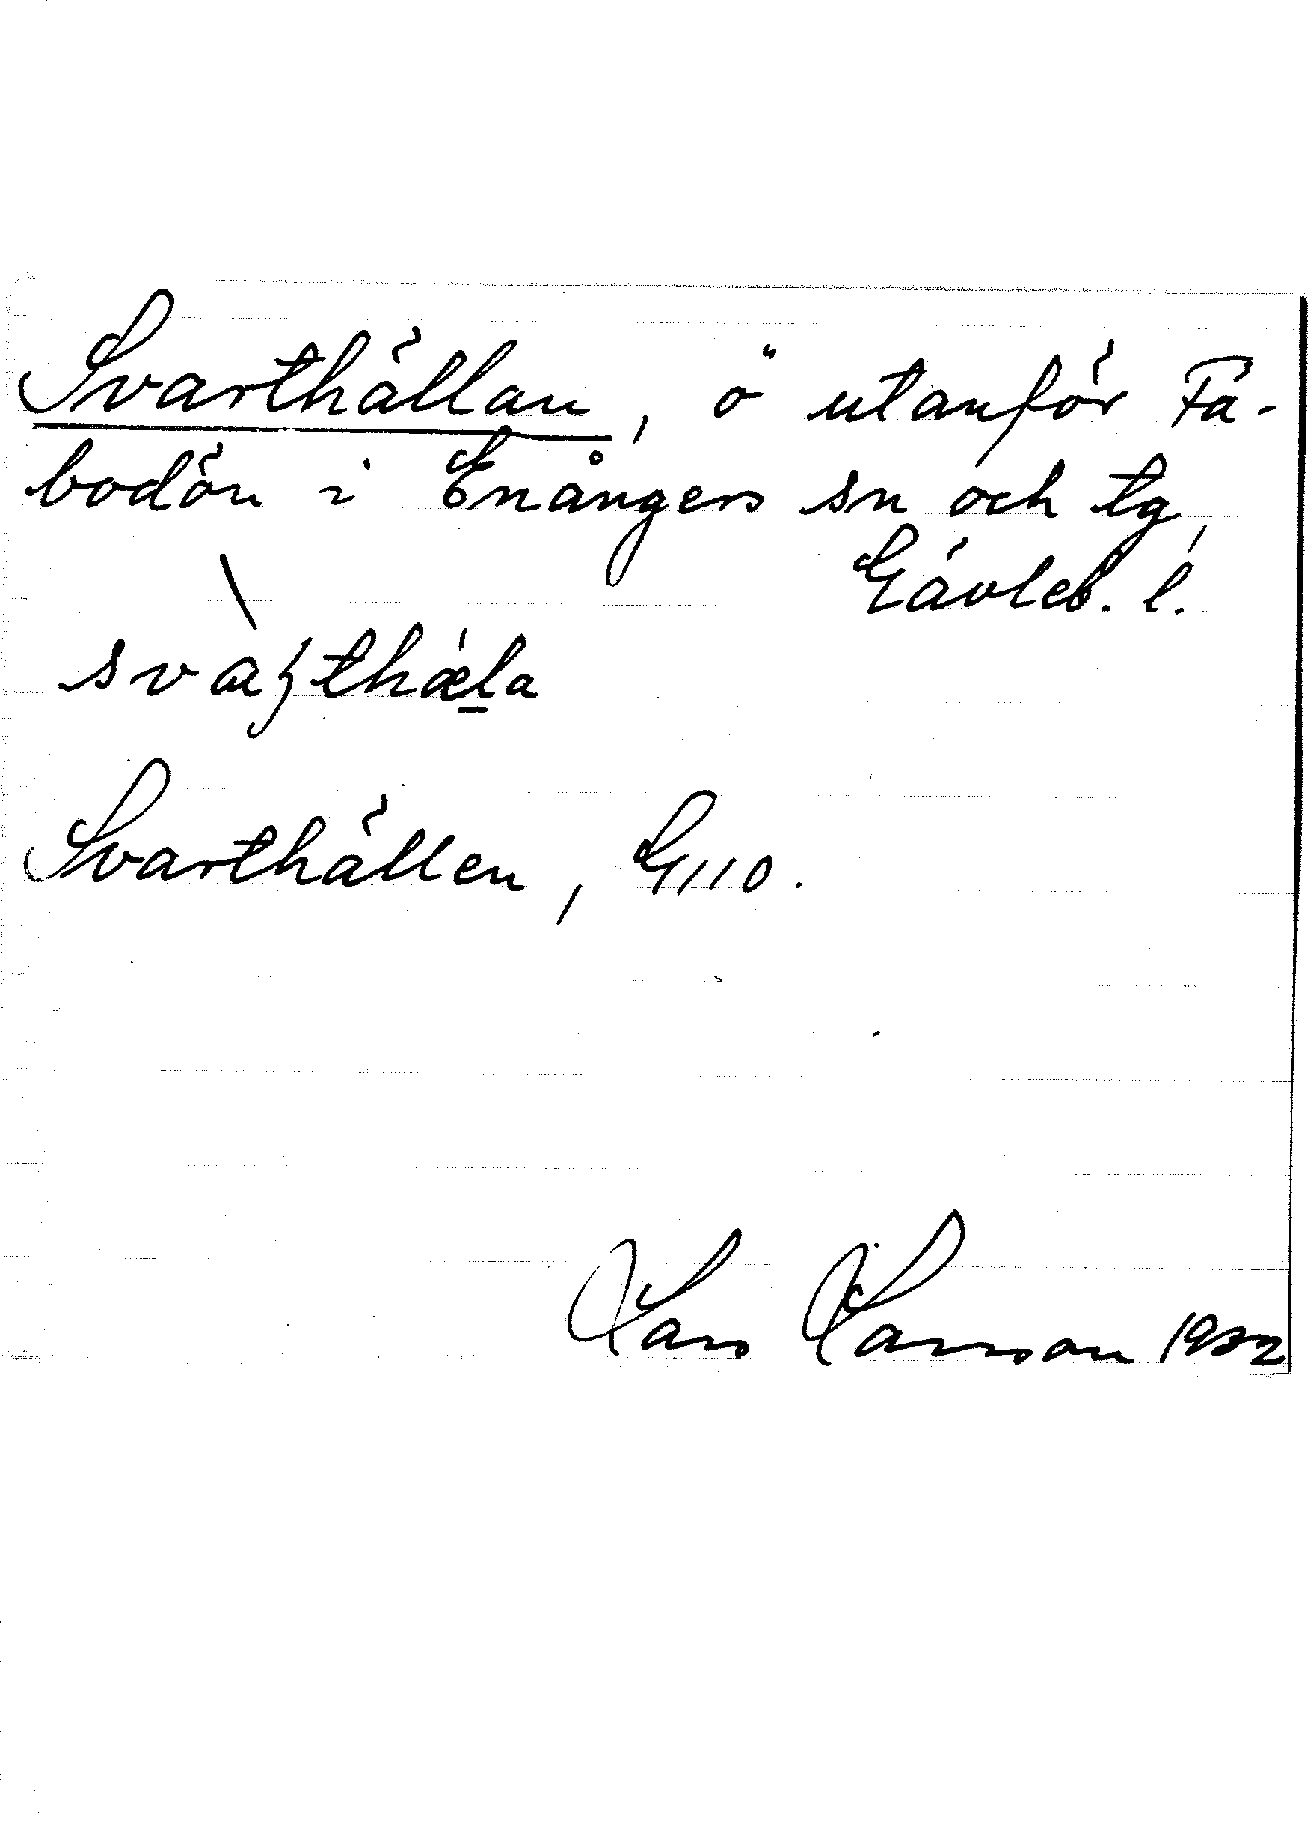 Svarthällan, ö utanför Fa-
bodön i Enångers sn och tg,
Gävleb. l.
svaʈthæla
Svarthällen, G110.
Lars Larsson 1932